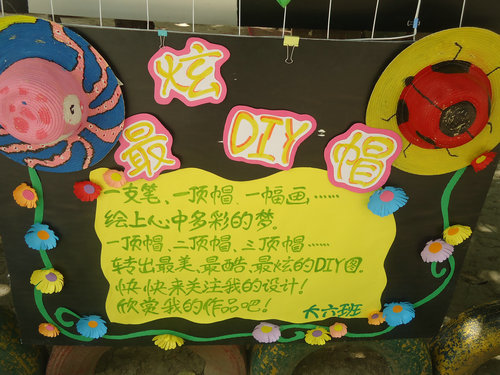 炫
最 DIY 帽
一支笔、一顶帽、一幅画、……
绘上心中多彩的梦。
一顶帽、二顶帽、三顶帽……
转出最美、最酷、最炫的DIY图。
快快来关注我的设计！
欣赏我的作品吧！
大六班